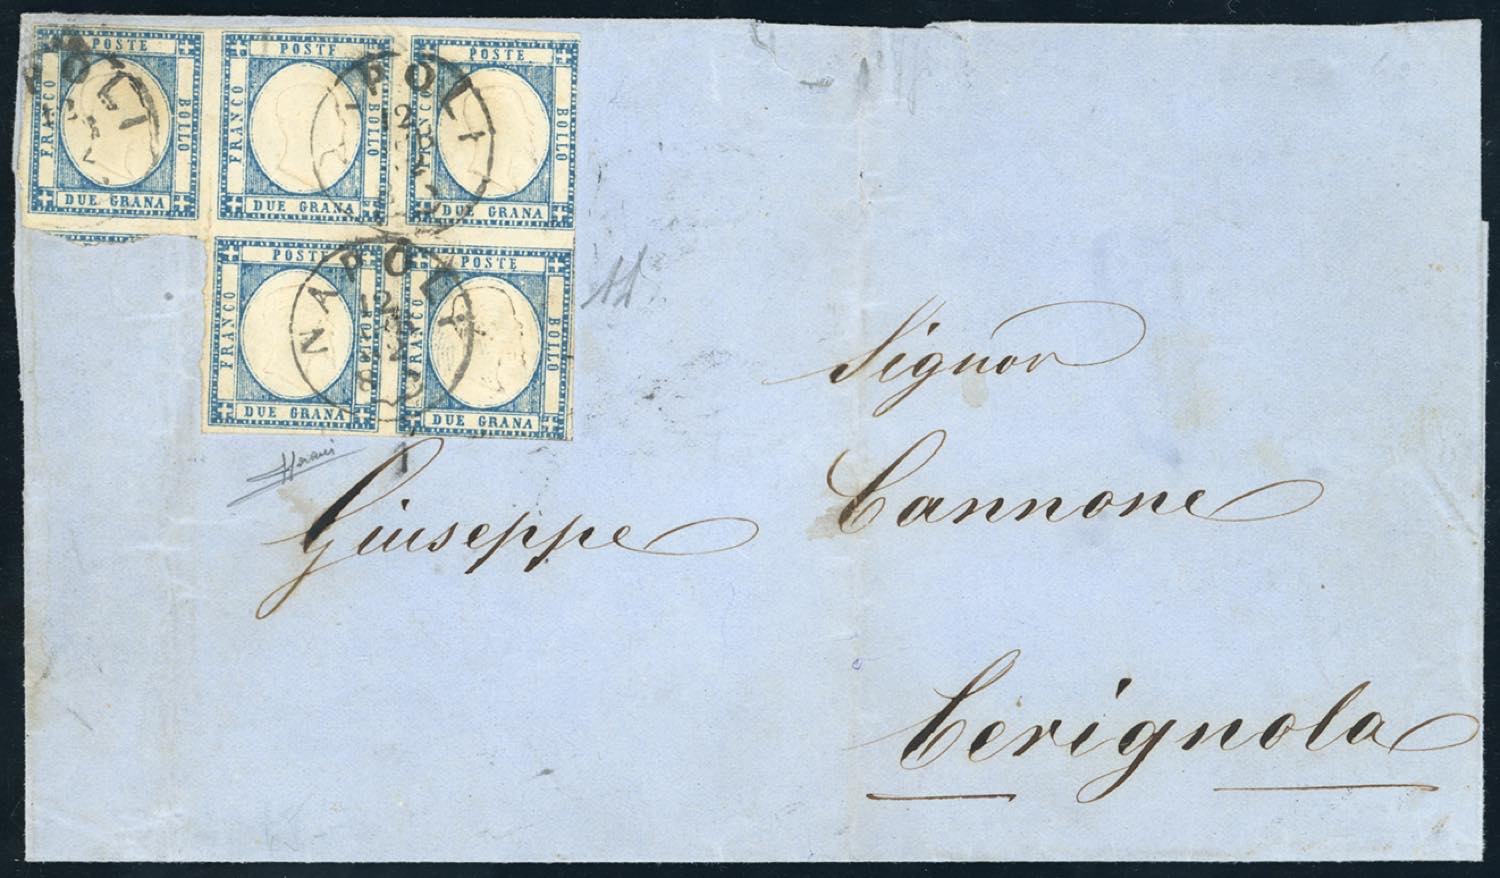 POSTE POSTE POSTE
FRANCO BOLLO FRANCO BOLLO FRANCO BOLLO
DUE GRANA DUE GRANA DUE GRANA
POLI
APOLI
12
POSTE POSTE
FRANCO BOLLO FRANCO BOLLO
DUE GRANA DUE GRANA
NAPOLI
12
1
Signor
Giuseppe Cannone
Cerignola